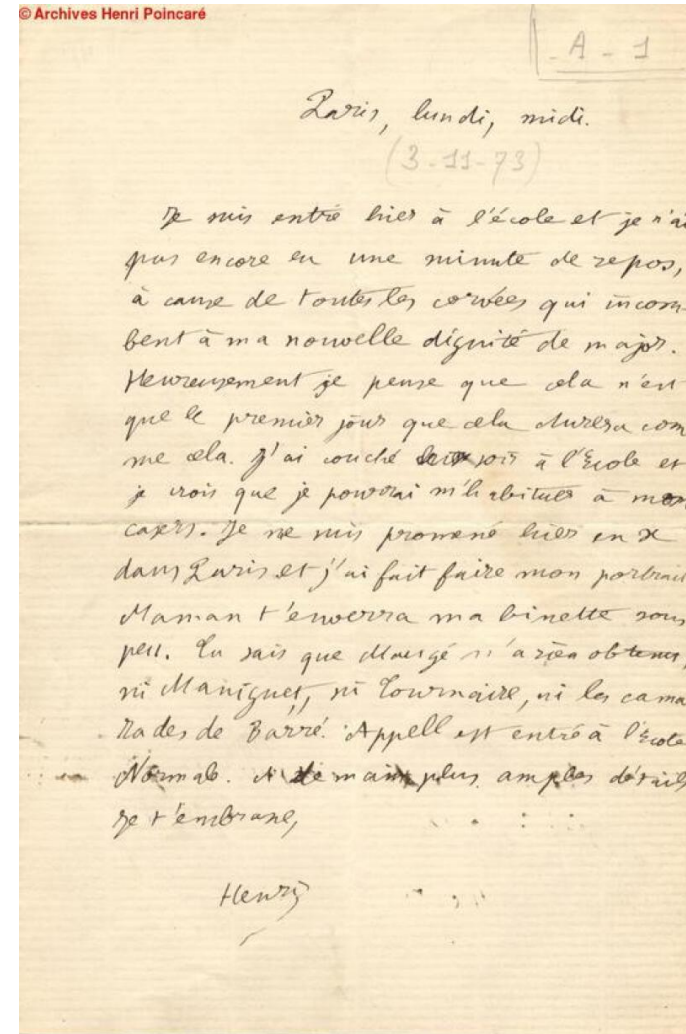 © Archives Henri Poincaré
A - 1
Paris, lundi, midi.
(3-11-73)
Je suis entré hier à l'école et je n'ai
pas encore eu une minute de repos,
à cause de toutes les corvées qui incom-
bent à ma nouvelle dignité de major.
Heureusement je pense que cela n'est
que le premier jour que cela durera com
me cela. J'ai couché soir à l'École et
je crois que je pourrai m'habituer à mon
casern. Je me suis promené hier en X
dans Paris et j'ai fait faire mon portrait
Maman t'enverra ma binette sous
peu. Tu sais que n'a rien obtenu,
ni Maniguet, ni Tournaire, ni les cama
rades de Barré. Appell est entré à l'École
Normale. A demain plus amples détails
Je t'embrasse,
Henri